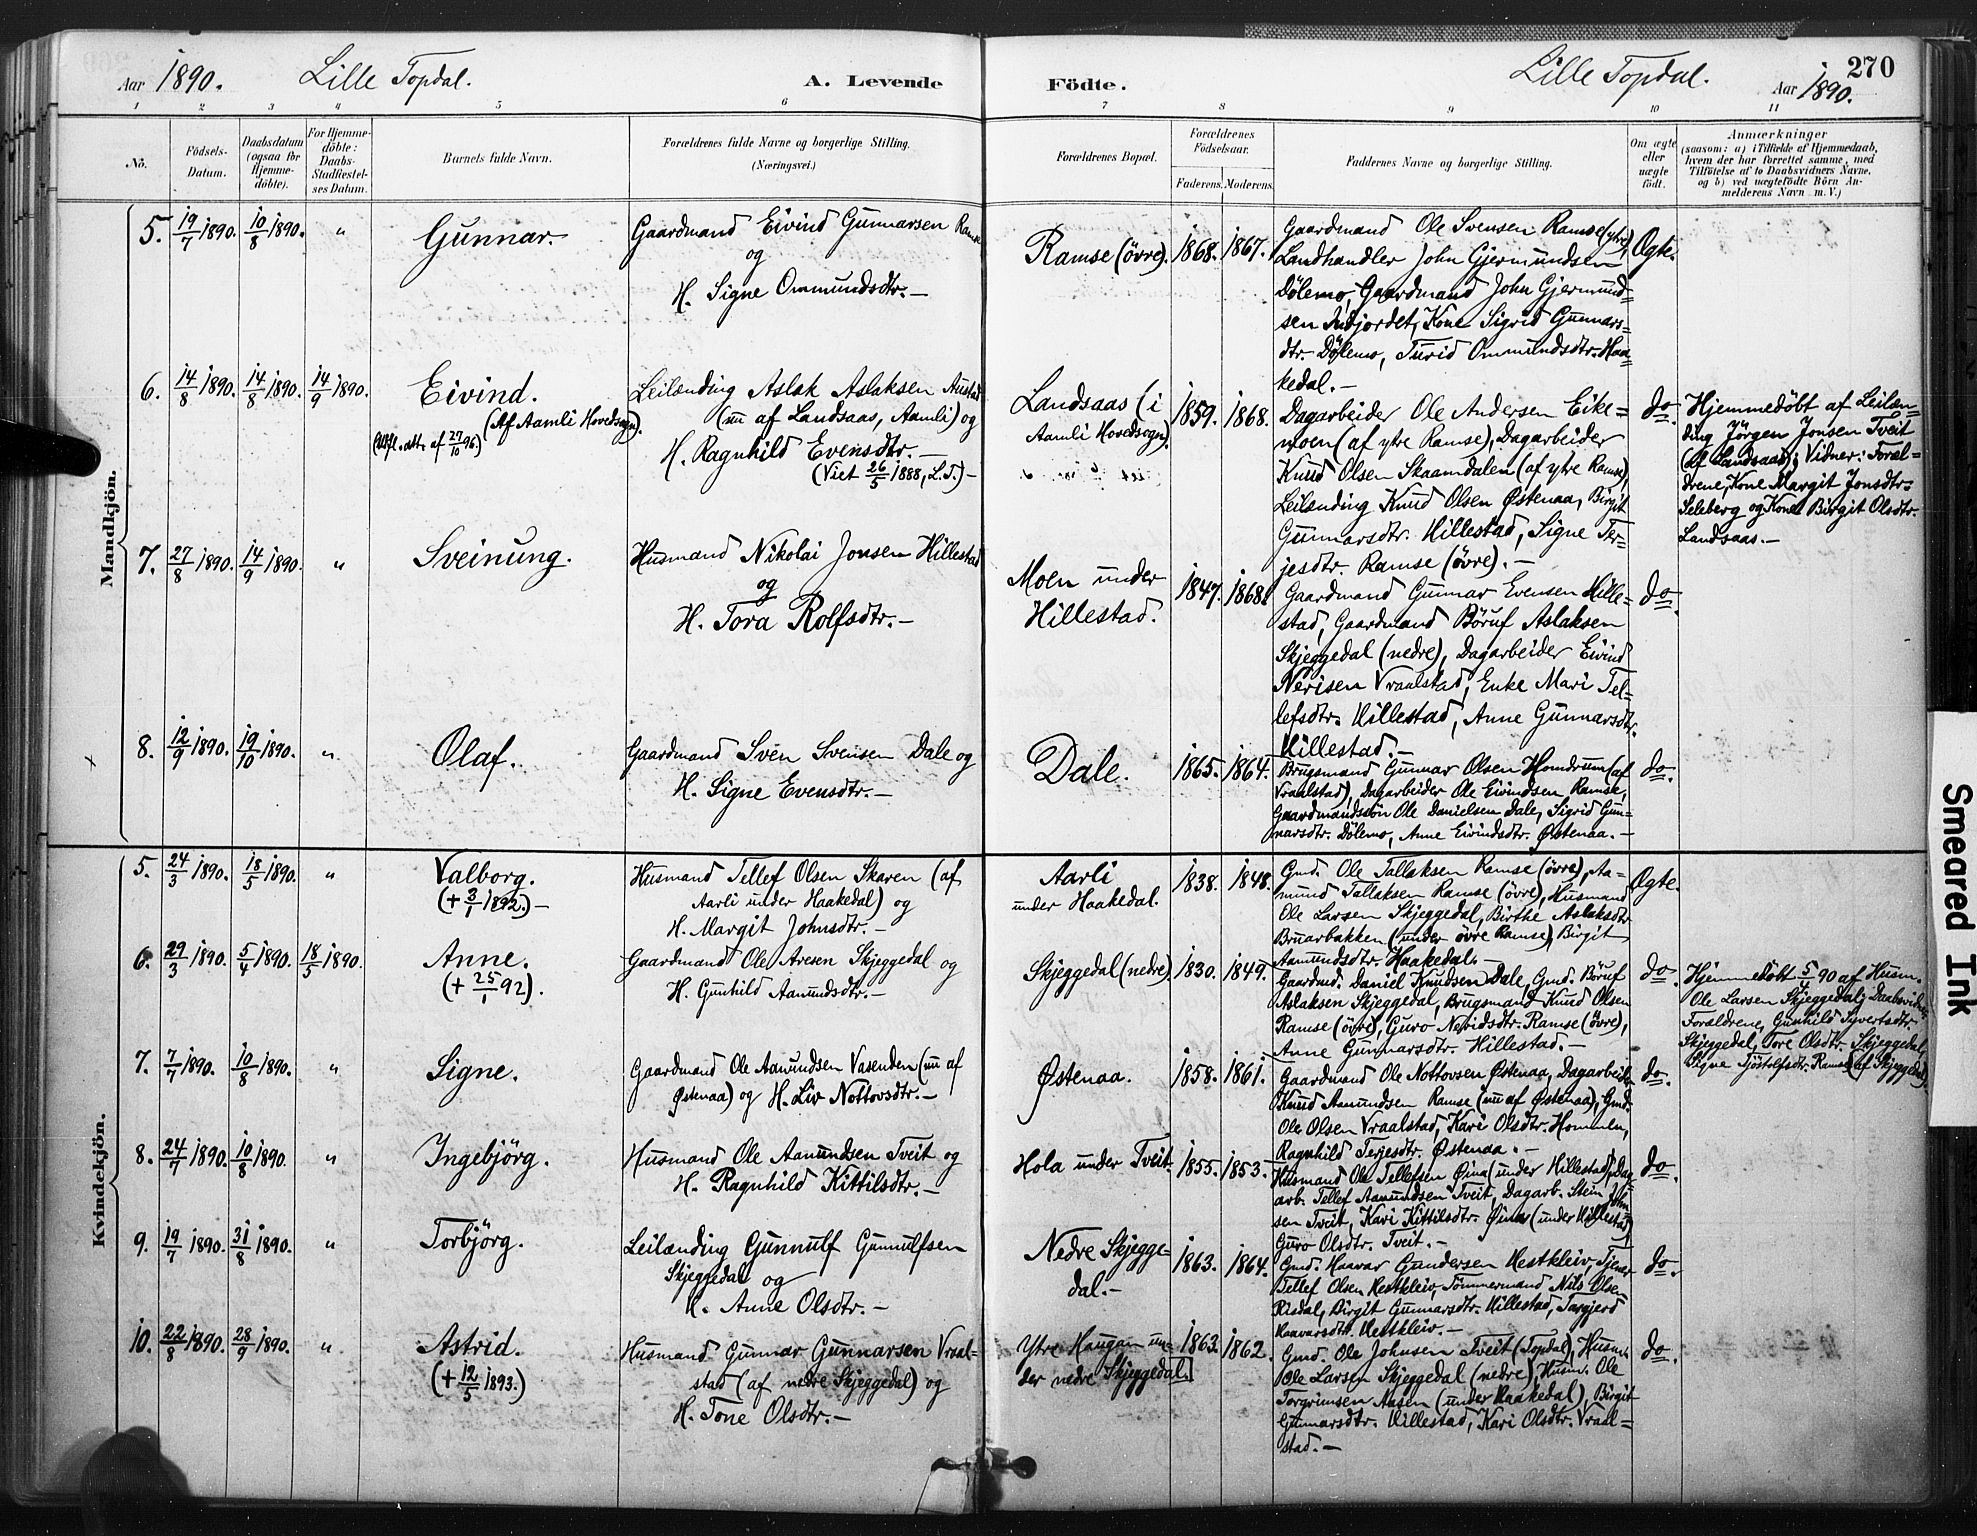 Aar 1890. Lille Topdal. A. Levende Födte. Lille Topdal. Aar 1890. 270
1 2 3 4 5 6 7 8 9 10 11
No.
Födsels-
Datum.
Daabsdatum
(ogsaa for
Hjemme-
döbte).
For Hjemme-
döbte:
Daabs-
Stadfæstel-
ses Datum.
Barnets fulde Navn.
Forældrenes fulde Navne og borgerlige Stilling.
(Næringsvei.)
Forældrenes Bopæl.
Forældrenes
Födselsaar.
Faderens. Moderens.
Faddernes Navne og borgerlige Stilling.
Om ægte
eller
uægte
födt.
Anmærkninger
(saasom: a) i Tilfælde af Hjemmedaab,
hvem der har forrettet samme, med
Tilföielse af to Daabsvidners Navne,
og b) ved uægtefödte Börn An-
melderens Navn m. V.)
Mandkjön.
5. 19/7 1890. 10/8 1890. " Gunnar.
Gaardmand Eivind Gunnarsen Ramse
og
H. Signe Ommundsdtr. —
Ramse (övre). 1868. 1867.
Gaardmand Ole Svensen Ramse (ytre),
Landhandler John Gjermundsen
Dölemo, Gaardmand John Gjermund=
sen Indjordet, Kone Sigrid Gunnars=
dtr. Dölemo, Turid Ommundsdtr. Haa=
kedal. —
Ægte.
6. 14/8 1890. 14/8 1890. 14/9 1890. Eivind.
(Af Aamli Hovedsogn).
(Udfl. att. af 27/10 96)
Leilænding Aslak Aslaksen Austad
(nu af Landsaas, Aamli) og
H. Ragnhild Evensdtr. —
(Viet 26/5 1888, L.T.) —
Landsaas (i
Aamli Hovedsogn).
1859. 1868.
Dagarbeider Ole Andersen Eike=
moen (af ytre Ramse), Dagarbeider
Knud Olsen Skaamdalen (af ytre Ramse),
Leilænding Knud Olsen Østenaa, Birgit
Gunnarsdtr. Hillestad, Signe Ter=
jesdtr. Ramse (övre). —
do.
Hjemmedöbt af Leilæn=
ding Jörgen Jonsen Tveit
(af Landsaas); Vidner: Foræl=
drene, Kone Margit Jonsdtr.
Seleberg og Kone Birgit Olsdtr.
Landsaas. —
7. 27/8 1890. 14/9 1890. " Sveinung.
Husmand Nikolai Jonsen Hillestad
og
H. Tora Rolfsdtr. —
Moen under
Hillestad.
1847. 1868.
Gaardmand Gunnar Evensen Hille=
stad, Gaardmand Böruf Aslaksen
Skjeggedal (nedre), Dagarbeider Eivind
Nerisen Vraalstad, Enke Mari Tel=
lefsdtr. Hillestad, Anne Gunnarsdtr.
Hillestad. —
do.
8. 12/9 1890. 19/10 1890. " Olaf.
Gaardmand Sven Svensen Dale og
H. Signe Evensdtr. —
Dale. 1865. 1864.
Brugsmand Gunnar Olsen Homdrum (af
Vraalstad), Dagarbeider Ole Eivindsen Ramse,
Gaardmandssön Ole Danielsen Dale, Sigrid Gun=
narsdtr. Dölemo, Anne Eivindsdtr. Østenaa. —
do.
Kvindekjön.
5. 24/3 1890. 18/5 1890. " Valborg.
(+ 3/1 1892.) —
Husmand Tellef Olsen Skaren (af
Aarli under Haakedal) og
H. Margit Johnsdtr. —
Aarli
under Haakedal.
1838. 1848.
Gmd. Ole Tallaksen Ramse (övre), Aa=
mund Tallaksen Ramse (övre), Husmand
Ole Larsen Skjeggedal, Birthe Aslaksdtr.
Bruarbakken (under övre Ramse), Birgit
Aamundsdtr. Haakedal. —
Ægte.
6. 29/3 1890. 5/4 1890. 18/5 1890. Anne.
(+ 25/1 92).
Gaardmand Ole Aresen Skjeggedal og
H. Gunhild Aamundsdtr. —
Skjeggedal (nedre). 1830. 1849.
Gaardmd. Daniel Knudsen Dale, Gmd. Böruf
Aslaksen Skjeggedal, Brugsmand Knud Olsen
Ramse (övre), Guro Neridsdtr. Ramse (övre),
Anne Gunnarsdtr. Hillestad. —
do.
Hjemmedöbt 5/4 90 af Husm.
Ole Larsen Skjeggedal; Daabsvidner:
Forældrene, Gunhild Syvertsdtr.
Skjeggedal, Tore Olsdtr. Skjeggedal,
Signe Tjöstolfsdtr. Ramse (af Skjeggedal).
7. 7/7 1890. 10/8 1890. " Signe.
Gaardmand Ole Aamundsen Vasenden (nu af
Østenaa) og H. Liv Nottovsdtr. —
Østenaa. 1858. 1861.
Gaardmand Ole Nottovsen Østenaa, Dagarbeider
Knud Aamundsen Ramse (nu af Østenaa), Gmd.
Ole Olsen Vraalstad, Kari Olsdtr. Hommen,
Ragnhild Terjesdtr. Østenaa. —
do.
8. 24/7 1890. 10/8 1890. " Ingebjörg.
Husmand Ole Aamundsen Tveit og
H. Ragnhild Kittilsdtr. —
Hola under Tveit. 1855. 1853.
Husmand Ole Tellefsen Øina (under Hillestad), Dag=
arb. Tellef Aamundsen Tveit, Dagarb. Stein John=
sen Tveit, Kari Kittilsdtr. Øina (under Hillestad),
Guro Olsdtr. Tveit. —
do.
9. 19/7 1890. 31/8 1890. " Torbjörg.
Leilænding Gunnulf Gunnulfsen
Skjeggedal og
H. Anne Olsdtr. —
Nedre Skjegge=
dal. —
1863. 1864.
Gmd. Haavar Gundersen Hestkleiv, Tjener
Tellef Olsen Hestkleiv, Tömmermand Nils Olsen
Risdal, Birgit Gunnarsdtr. Hillestad, Targjerd
Haavarsdtr. Hestkleiv. —
do.
10. 22/8 1890. 28/9 1890. " Astrid.
(+ 12/5 1893.)
Husmand Gunnar Gunnarsen Vraal=
stad (af nedre Skjeggedal) og
H. Tone Olsdtr. —
Ytre Haugan un=
der nedre Skjeggedal.
1863. 1862.
Gmd. Ole Johnsen Tveit (Topdal), Husm.
Ole Larsen Skjeggedal (nedre), Husm. Ole
Torgrimsen Aasen (under Haakedal), Birgit
Gunnarsdtr. Hillestad, Kari Olsdtr. Vraal=
stad. —
do.
Smeared Ink